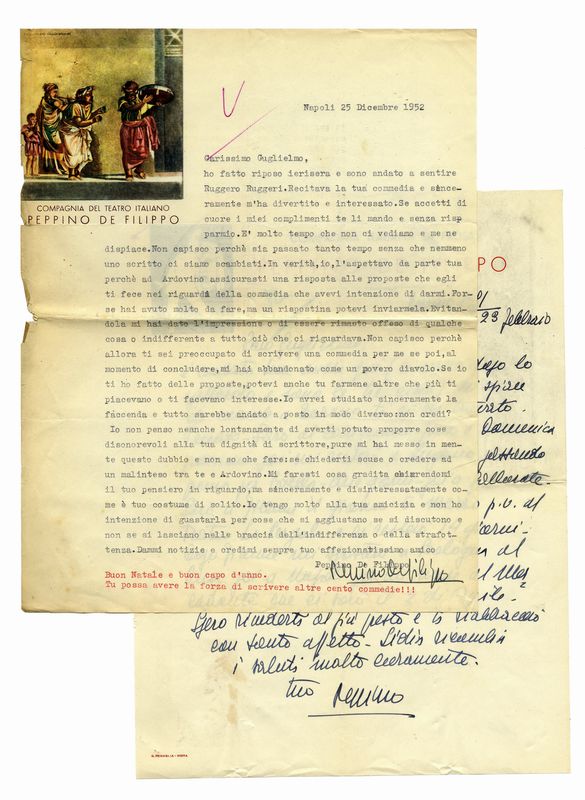 Napoli 25 Dicembre 1952
COMPAGNIA DEL TEATRO ITALIANO
PEPPINO DE FILIPPO
Carissimo Guglielmo,
ho fatto riposo ierisera e sono andato a sentire
Ruggero Ruggeri.Recitava la tua commedia e since-
ramente m'ha divertito e interessato.Se accetti di
cuore i miei complimenti te li mando e senza risp
parmio.E' molto tempo che non ci vediamo e me ne
dispiace.Non capisco perchè sia passato tanto tempo senza che nemmeno
uno scritto ci siamo scambiati.In verità,io,l'aspettavo da parte tua
perchè ad Ardovino assicurasti una risposta alle proposte che egli
ti fece nei riguardi della commedia che avevi intenzione di darmi.For-
se hai avuto molto da fare,ma un rispostina potevi inviarmela.Evitan-
dola mi hai dato l'impressione o di essere rimasto offeso di qualche
cosa o indifferente a tutto ciò che ci riguardava.Non capisco perchè
allora ti sei preoccupato di scrivere una commedia per me se poi,al
momento di concludere,mi hai abbandonato come un povero diavolo.Se io
ti ho fatto delle proposte,potevi anche tu farmene altre che più ti
piacevano o ti facevano interesse.Io avrei studiato sinceramente la
faccenda e tutto sarebbe andato a posto in modo diverso:non credi?
Io non penso neanche lontanamente di averti potuto proporre cose
disonorevoli alla tua dignità di scrittore,pure mi hai messo in men-
te questo dubbio e non so che fare:se chiederti scuse o credere ad
un malinteso tra te e Ardovino.Mi faresti cosa gradita chiarendomi
il tuo pensiero in riguardo,ma sinceramente e disinteressatamente co-
me è tuo costume di solito.Io tengo molto alla tua amicizia e non ho
intenzione di guastarla per cose che si aggiustano se si discutono e
non se si lasciano nelle braccia dell'indifferenza o della strafot-
tenza.Dammi notizie e credimi sempre tuo affezionatissimo amico
Peppino De Filippo
Peppino De Filippo
Buon Natale e buon capo d'anno.
Tu possa avere la forza di scrivere altre cento commedie!!!
PO
23 febbraio
lo
Domenica
p.v. al
al
Spero rivederti al più presto e ti riabbraccio
con tanto affetto. Lidia ricambia
i saluti molto caramente.
tuo Peppino